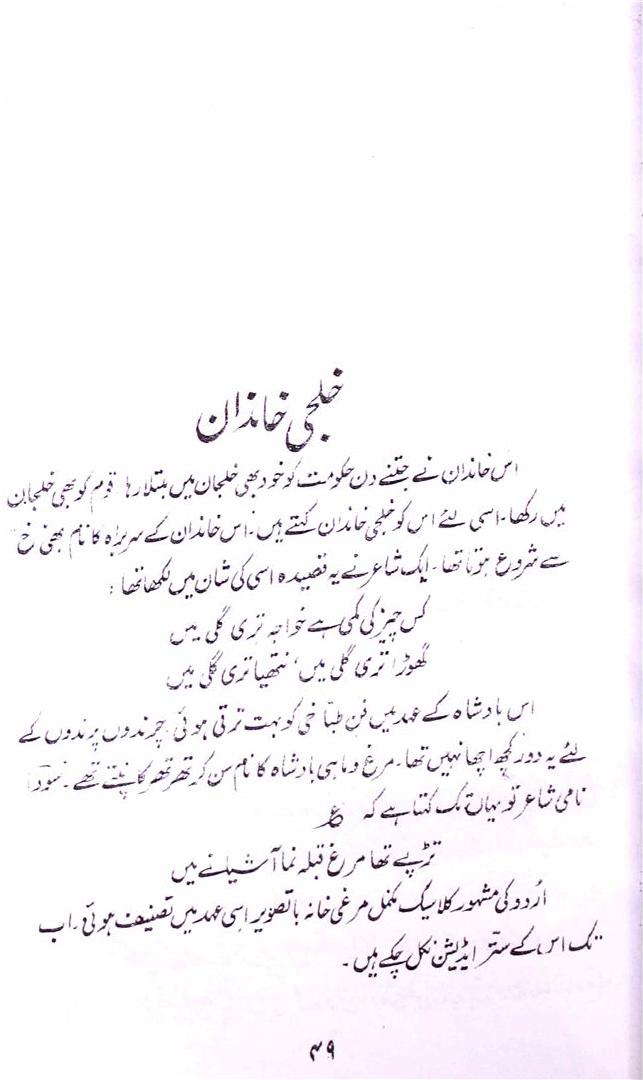 خلجی خاندان
اس خاندان نے جتنے دن حکومت کو خود بھی خلجان میں مبتلا رہا۔ قوم کو بھی خلجان
میں رکھا۔ اسی لئے اس کو خلجی خاندان کہتے ہیں۔ اس خاندان کے سربراہ کا نام بھی خ
سے شروع ہوتا تھا۔ ایک شاعر نے یہ قصیدہ اسی کی شان میں لکھا تھا:
کس چیز کی کمی ہے خواجہ تری گلی میں
گھوڑا تری گلی میں، نتھیا تری گلی میں
اس بادشاہ کے عہد میں فن طباخی کو بہت ترقی ہوئی۔ چرندوں پرندوں کے
لئے یہ دور کچھ اچھا نہیں تھا۔ مرغ و ماہی بادشاہ کا نام سن کر تھر تھر کانپتے تھے۔ سودا
نامی شاعر تو یہاں تک کہتا ہے کہ ؏
تڑپے تھا مرغ قبلہ نما آشیانے میں
اُردو کی مشہور کلاسیک مکمل مرغی خانہ با تصویر اسی عہد میں تصنیف ہوئی۔ اب
تک اس کے ستّر ایڈیشن نکل چکے ہیں۔
۴۹